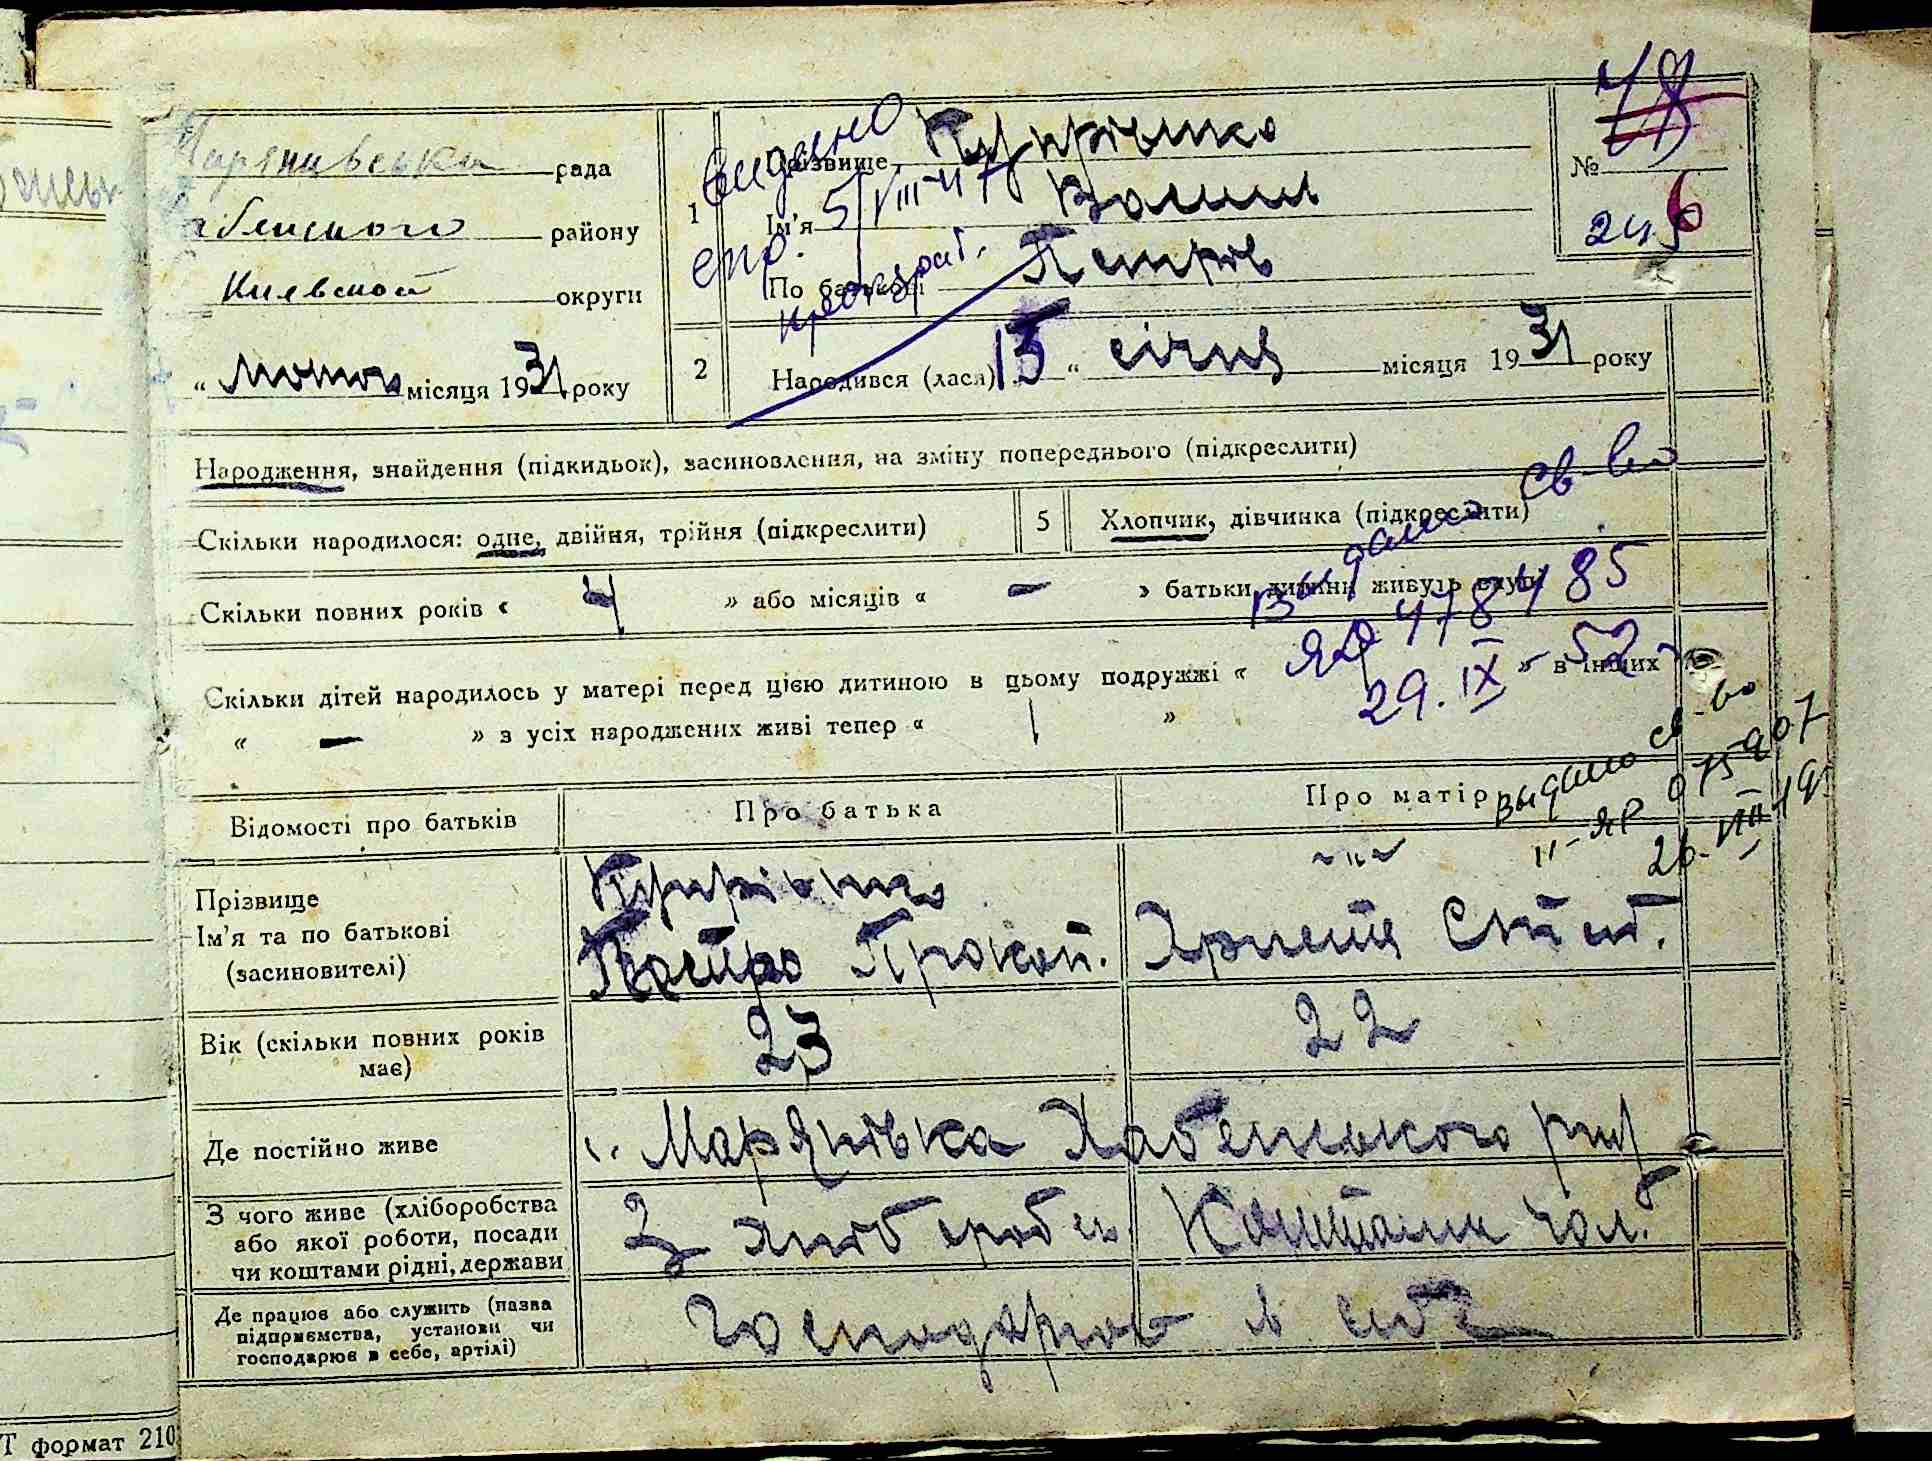 рада
району
Киевской округи
" лютого місяця 1931 року
1
Прізвище
Ім'я Василь
По батькові Петрів
№ 48
245 6
видано
5/VIII-47
спр.
2
Народився (лася) 15 " січня місяця 1931 року
Народження, знайдення (підкидьок), засиновлення, на зміну попереднього (підкреслити)
Скільки народилося: одне, двійня, трійня (підкреслити)
5
Хлопчик, дівчинка (підкреслити)
Скільки повних років « 4 » або місяців « — » батьки дитини живуть вкупі
Скільки дітей народилось у матері перед цією дитиною в цьому подружжі « » в інших
« — » з усіх народжених живі тепер « »
Выдано св-во
ЯО 478485
29. IX - 52
выдано св-во
II-ЯР 075907
26. VIII 19
Відомості про батьків
Про батька
Про матір
Прізвище
Ім'я та по батькові
(засиновителі)
Петро Прокоп.
-"-
Христя
Вік (скільки повних років
має)
23
22
Де постійно живе
с. Мар'янівка Хабенського рай
З чого живе (хліборобства
або якої роботи, посади
чи коштами рідні, держави
З хліборобст.
Коштами чол.
Де працює або служить (назва
підприємства, установи чи
господарює в себе, артілі)
Господарює в себе
Т формат 210